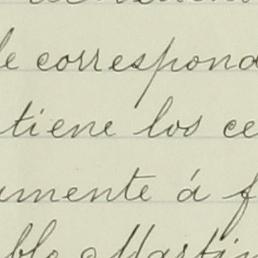 le correspond
tiene los ce
umente á f
ble Martin